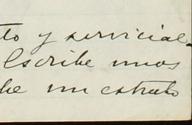 to y servicial.
Escribe unos
be un estrato